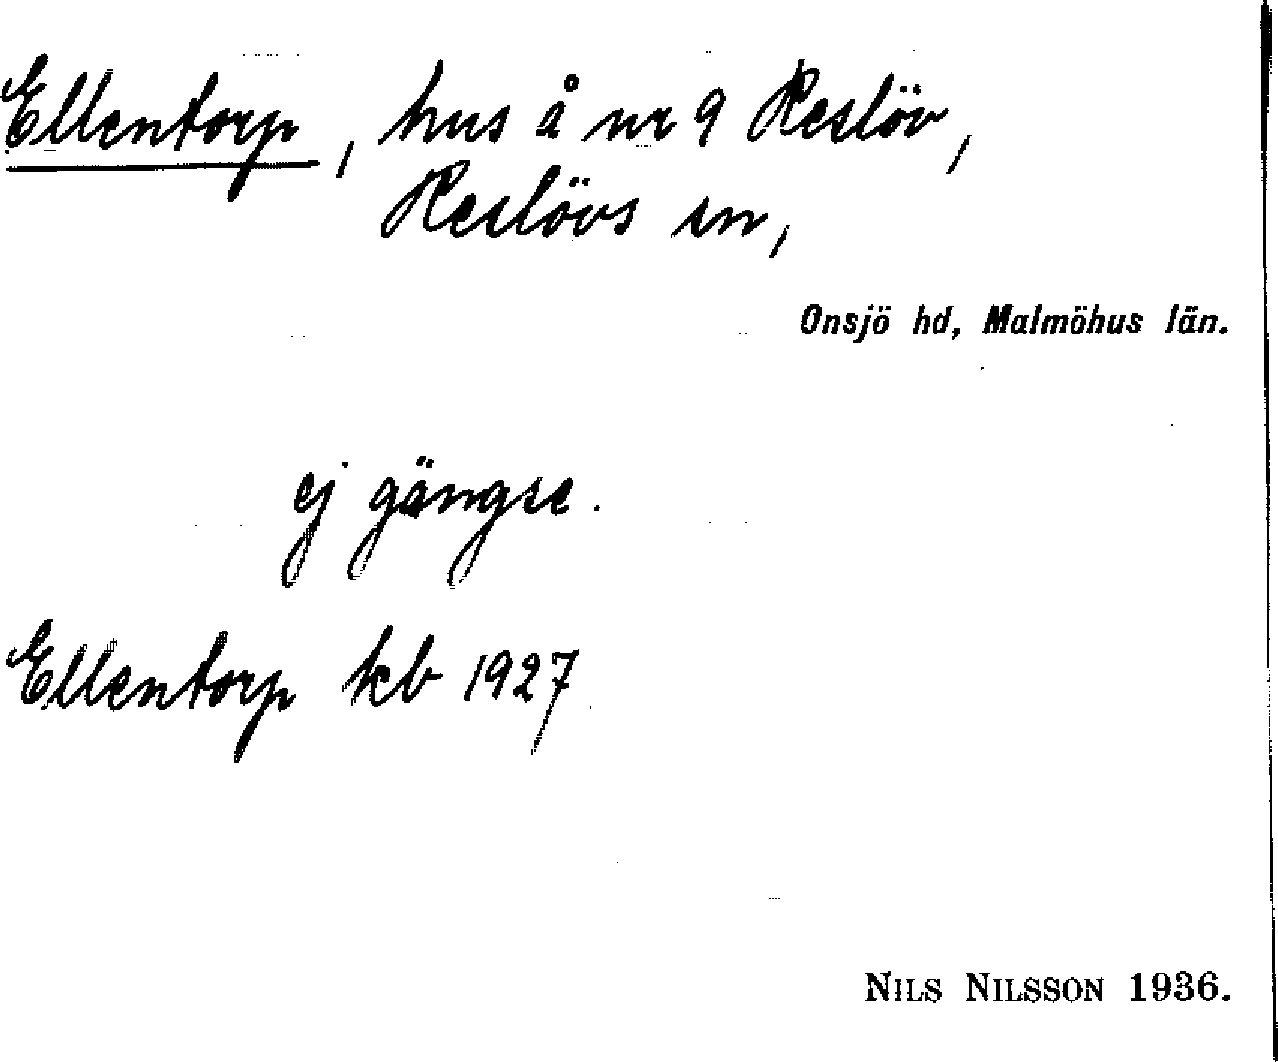 Ellentorp, hus å nr 9 Reslöv,
Reslövs sn,
Onsjö hd, Malmöhus län.
ej gängse.
Ellentorp kb 1927
NILS NILSSON 1936.